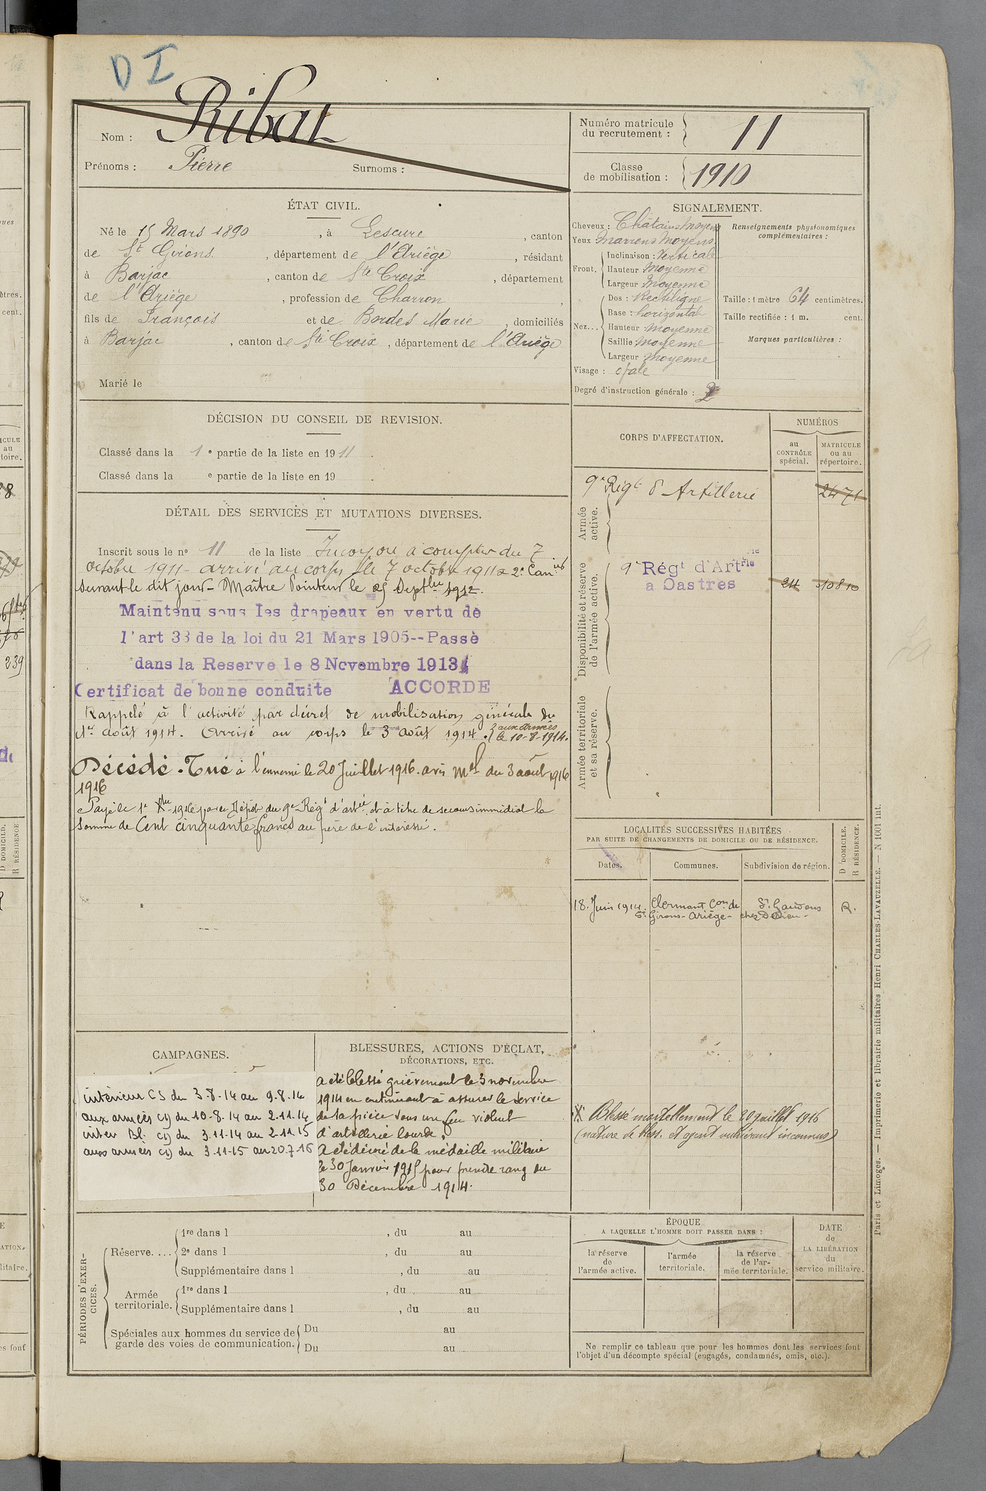 D I
Nom : Ribat
Prénoms : Pierre Surnoms :
Numéro matricule
du recrutement : 11
Classe
de mobilisation : 1910
ÉTAT CIVIL.
Né le 15 Mars 1890, à Lescure, canton
de St Girons, département de l'Ariège, résidant
à Barjac, canton de Ste Croix, département
de l'Ariège, profession de Charron,
fils de François et de Bordes Marie, domiciliés
à Barjac, canton de Ste Croix, département de l'Ariège
Marié le
SIGNALEMENT.
Cheveux : Châtains moyens
Yeux Marrons moyens
Front. Inclinaison : Verticale
Hauteur Moyenne
Largeur Moyenne
Nez... Dos : Rectiligne
Base : horizontal
Hauteur moyenne
Saillie moyenne
Largeur moyenne
Visage : ofale
Degré d'instruction générale : 2
Renseignements physionomiques
complémentaires :
Taille : 1 mètre 64 centimètres.
Taille rectifiée : 1 m. cent.
Marques particulières :
DÉCISION DU CONSEIL DE REVISION.
Classé dans la 1e partie de la liste en 1911.
Classé dans la e partie de la liste en 19 .
DÉTAIL DES SERVICES ET MUTATIONS DIVERSES.
Inscrit sous le no 11 de la liste Incorporé à compter du 7
octobre 1911 - arrivé au corps le 7 octobre 1911 2e Can
Suivant le dit jour - Maître Pointeur le 25 Septbre 1912.
Maintenu sous les drapeaux en vertu de
l'art 33 de la loi du 21 Mars 1905--Passé
dans la Reserve le 8 Novembre 1913
Certificat de bonne conduite ACCORDE
Rappelé à l'activité par décret de mobilisation générale du
1er août 1914. Arrivé au corps le 3 août 1914. aux armées
le 10-8-1914.
Décédé - Tué à l'ennemi le 20 Juillet 1916. avis Mel du 3 août 1916
1916
Payé le 1e 1916 par le Dépôt du 9e Régt d'artie à titre de secours immédiat la
somme de Cent cinquante francs au père de l'intéressé.
CORPS D'AFFECTATION.
NUMÉROS
au
CONTRÔLE
spécial.
MATRICULE
ou au
répertoire.
Armée
active.
9e Régt d'Artillerie 2471
Disponibilité et réserve
de l'armée active.
9e Régt d'Artrie
a Castres
Armée territoriale
et sa réserve.
LOCALITÉS SUCCESSIVES HABITÉES
PAR SUITE DE CHANGEMENTS DE DOMICILE OU DE RÉSIDENCE.
Dates.
Communes.
Subdivision de région.
D DOMICILE.
R RÉSIDENCE.
18 Juin 1914. Clermont Con de St Gaudens R.
St Girons - Ariège -
CAMPAGNES.
intérieur CS du 3-8-14 au 9-8-14
aux armées CS du 10-8-14 au 2-11-14
inter Bl. CS du 3.11-14 au 2-11-15
aux armées CS du 3-11-15 au 20.7-16
BLESSURES, ACTIONS D'ÉCLAT,
DÉCORATIONS, ETC.
A été blessé grièvement le 3 novembre
1914 en continuant à assurer le service
de la pièce sous un feu violent
d'artillerie lourde.
A été décoré de la médaille militaire
le 30 Janvier 1915 pour prendre rang du
30 Décembre 1914.
Blessé mortellement le 20 juillet 1916
(nature de bless. et agent vulnérant inconnus)
PÉRIODES D'EXERCICES.
Réserve.... 1re dans l , du au
2e dans l , du au
Supplémentaire dans l , du au
Armée
territoriale. 1re dans l , du au
Supplémentaire dans l , du au
Spéciales aux hommes du service de
garde des voies de communication. Du au
Du au
ÉPOQUE
A LAQUELLE L'HOMME DOIT PASSER DANS :
la réserve
de
l'armée active.
l'armée
territoriale.
la réserve
de l'armée territoriale.
DATE
de
LA LIBÉRATION
du
service militaire.
Ne remplir ce tableau que pour les hommes dont les services font
l'objet d'un décompte spécial (engagés, condamnés, omis, etc.).
Paris et Limoges. — Imprimerie et librairie militaires Henri CHARLES-LAVAUZELLE. — N 1001 int.